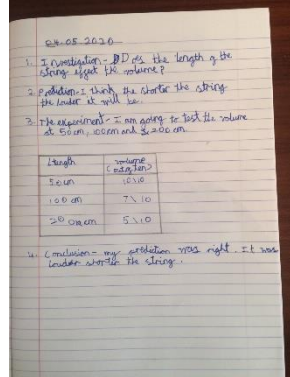 04.05.2020
1. Investigation - Does the length of the
string effect the volume?
2. Prediction - I think the shorter the string
the louder it will be.
3. The experiment - I am going to test the volume
at 50cm, 100cm and 200cm
Length volume
(out of ten)
50cm 10\10
100cm 7\10
200cm 5\10
4. Conclusion - my prediction was right. It was
louder shorter the string.